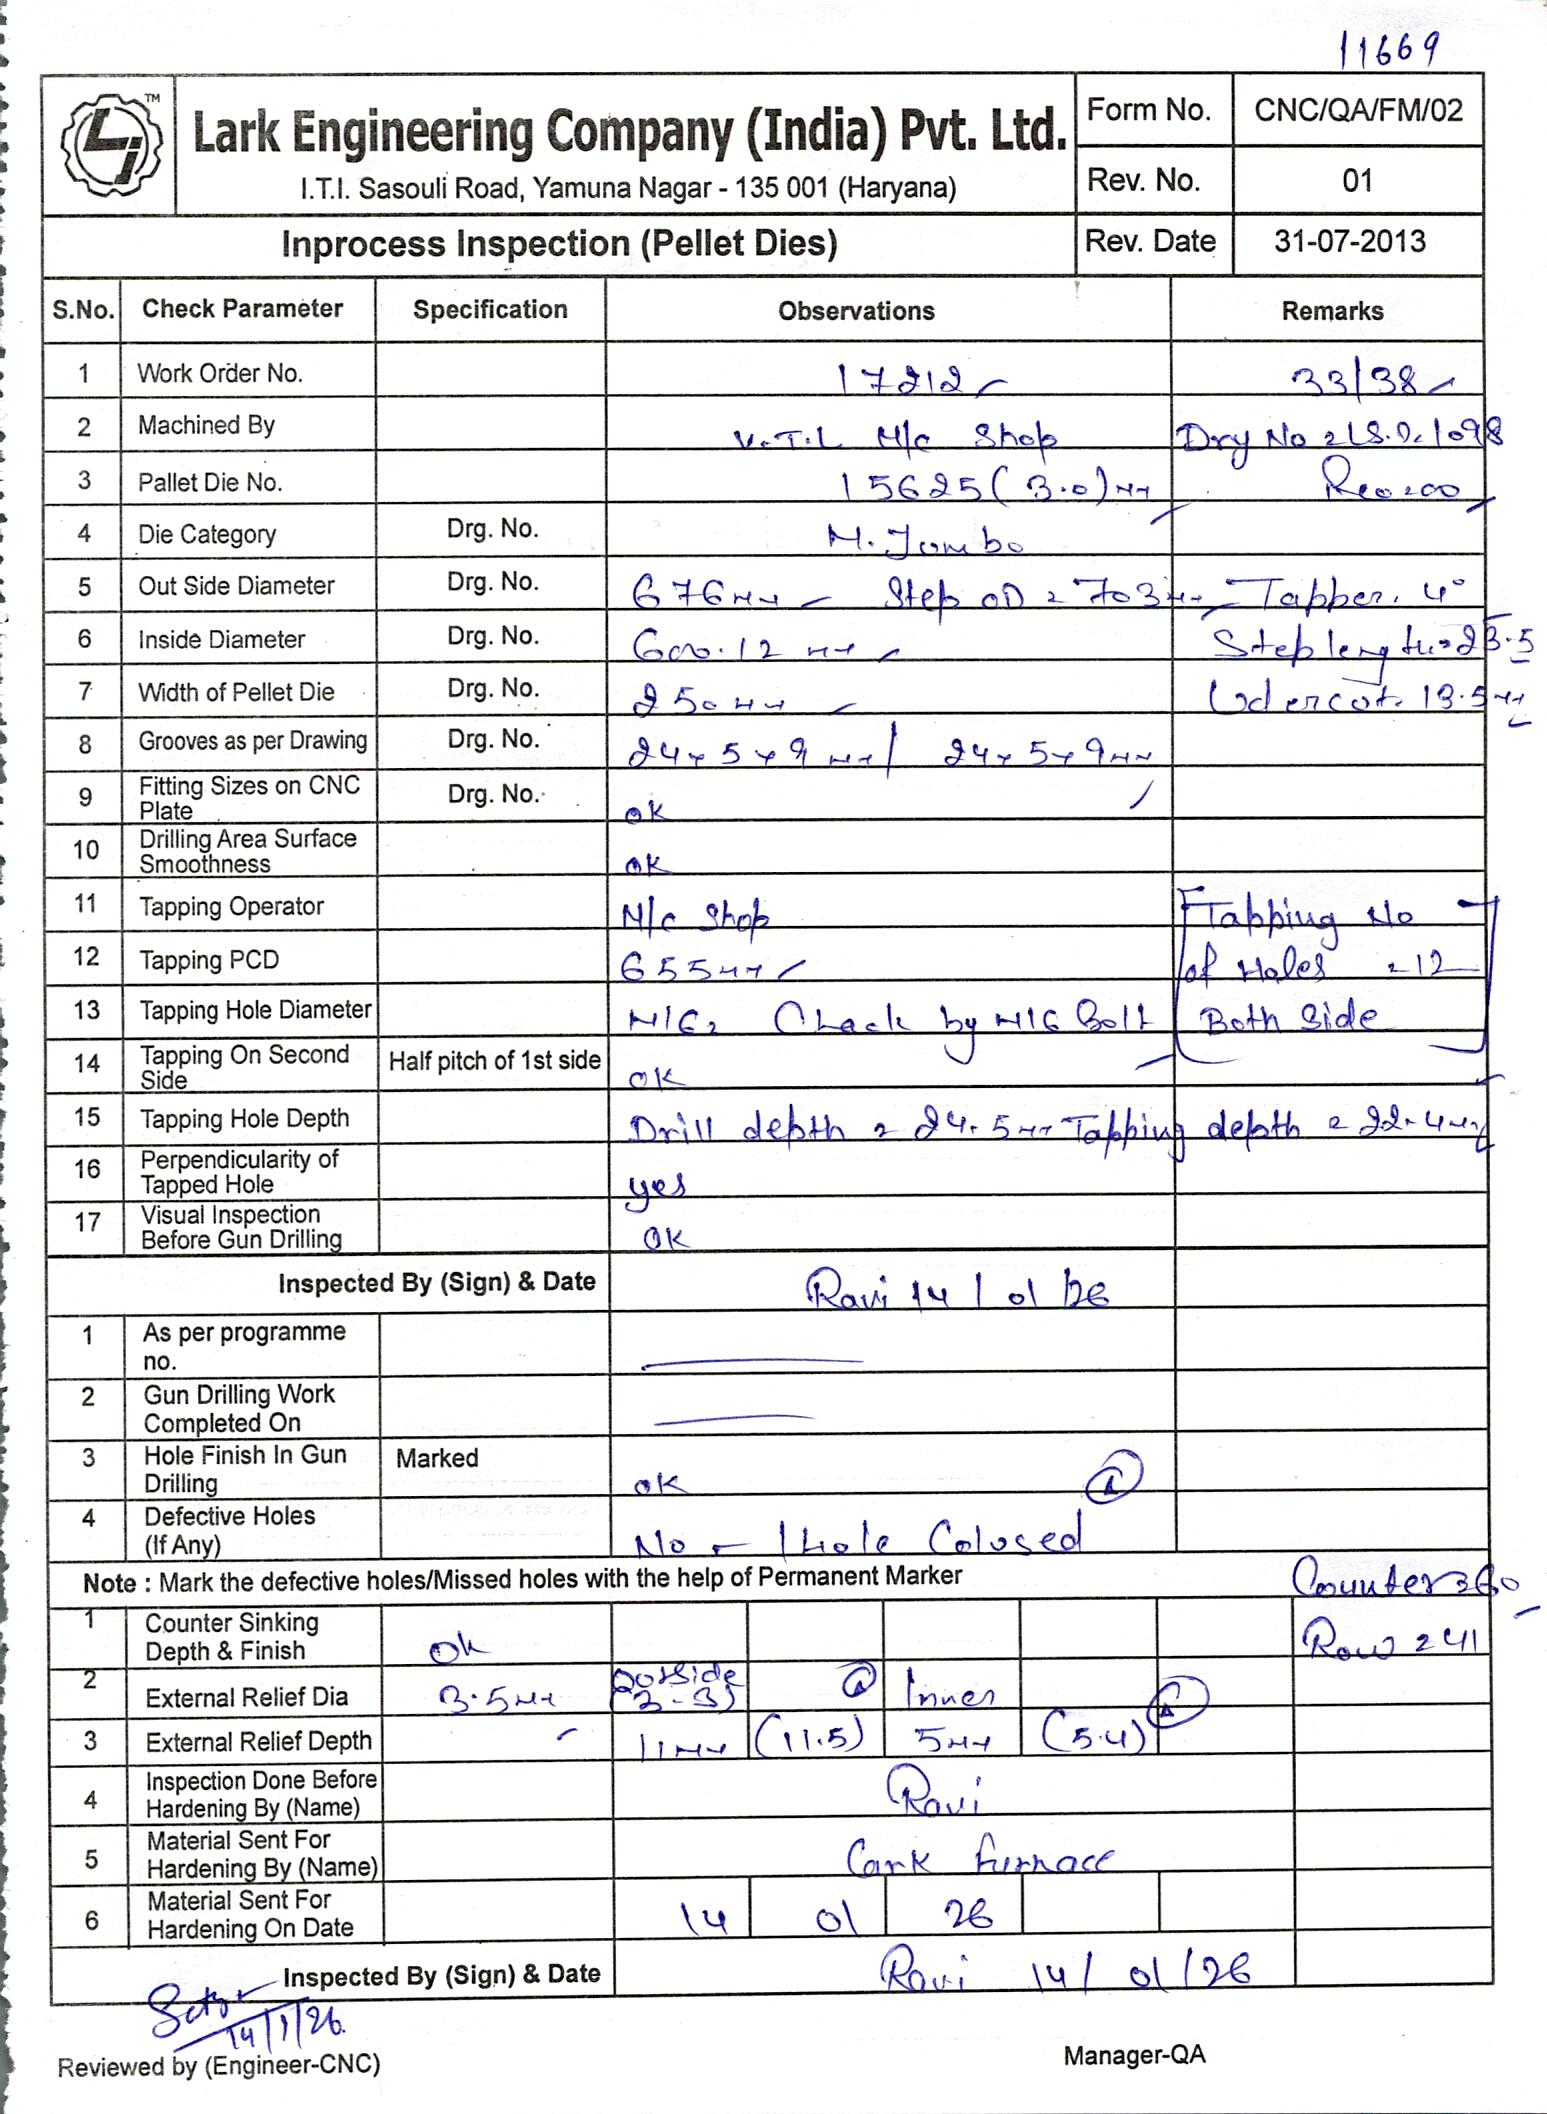 11669
Lark Engineering Company (India) Pvt. Ltd.
I.T.I. Sasouli Road, Yamuna Nagar - 135 001 (Haryana)
Form No. CNC/QA/FM/02
Rev. No. 01
Inprocess Inspection (Pellet Dies) Rev. Date 31-07-2013
S.No. Check Parameter Specification Observations Remarks
1 Work Order No. 17212 33/38
2 Machined By V.T.L M/c Shop Drg No = LS.D. 1098
3 Pallet Die No. 15625 (3.0)mm
4 Die Category Drg. No. M. Jumbo
5 Out Side Diameter Drg. No. 676mm Step OD = 703mm Tapper. 4°
6 Inside Diameter Drg. No. 600.12 mm Step length = 23.5
7 Width of Pellet Die Drg. No. 250mm Udercut. 13.5mm
8 Grooves as per Drawing Drg. No. 24x5x9mm/ 24x5x9mm
9 Fitting Sizes on CNC Plate Drg. No. ok
10 Drilling Area Surface Smoothness ok
11 Tapping Operator M/c Shop Tapping No
12 Tapping PCD 655mm of Holes = 12
13 Tapping Hole Diameter M16= Chack by M16 Bolt Both Side
14 Tapping On Second Side Half pitch of 1st side ok
15 Tapping Hole Depth Drill depth = 24.5mm Tapping depth = 22.4mm
16 Perpendicularity of Tapped Hole yes
17 Visual Inspection Before Gun Drilling ok
Inspected By (Sign) & Date Ravi 14/01/26
1 As per programme no.
2 Gun Drilling Work Completed On
3 Hole Finish In Gun Drilling Marked ok
4 Defective Holes (If Any) No - 1 Hole Colused
Note : Mark the defective holes/Missed holes with the help of Permanent Marker Counter = 60
1 Counter Sinking Depth & Finish Ok Row = 411
2 External Relief Dia 3.5mm Outside (3-3) Inner
3 External Relief Depth 11mm (11.5) 5mm (5.4)
4 Inspection Done Before Hardening By (Name) Ravi
5 Material Sent For Hardening By (Name) Lark furnace
6 Material Sent For Hardening On Date 14 01 26
Inspected By (Sign) & Date Ravi 14/01/26
14/1/26
Reviewed by (Engineer-CNC) Manager-QA